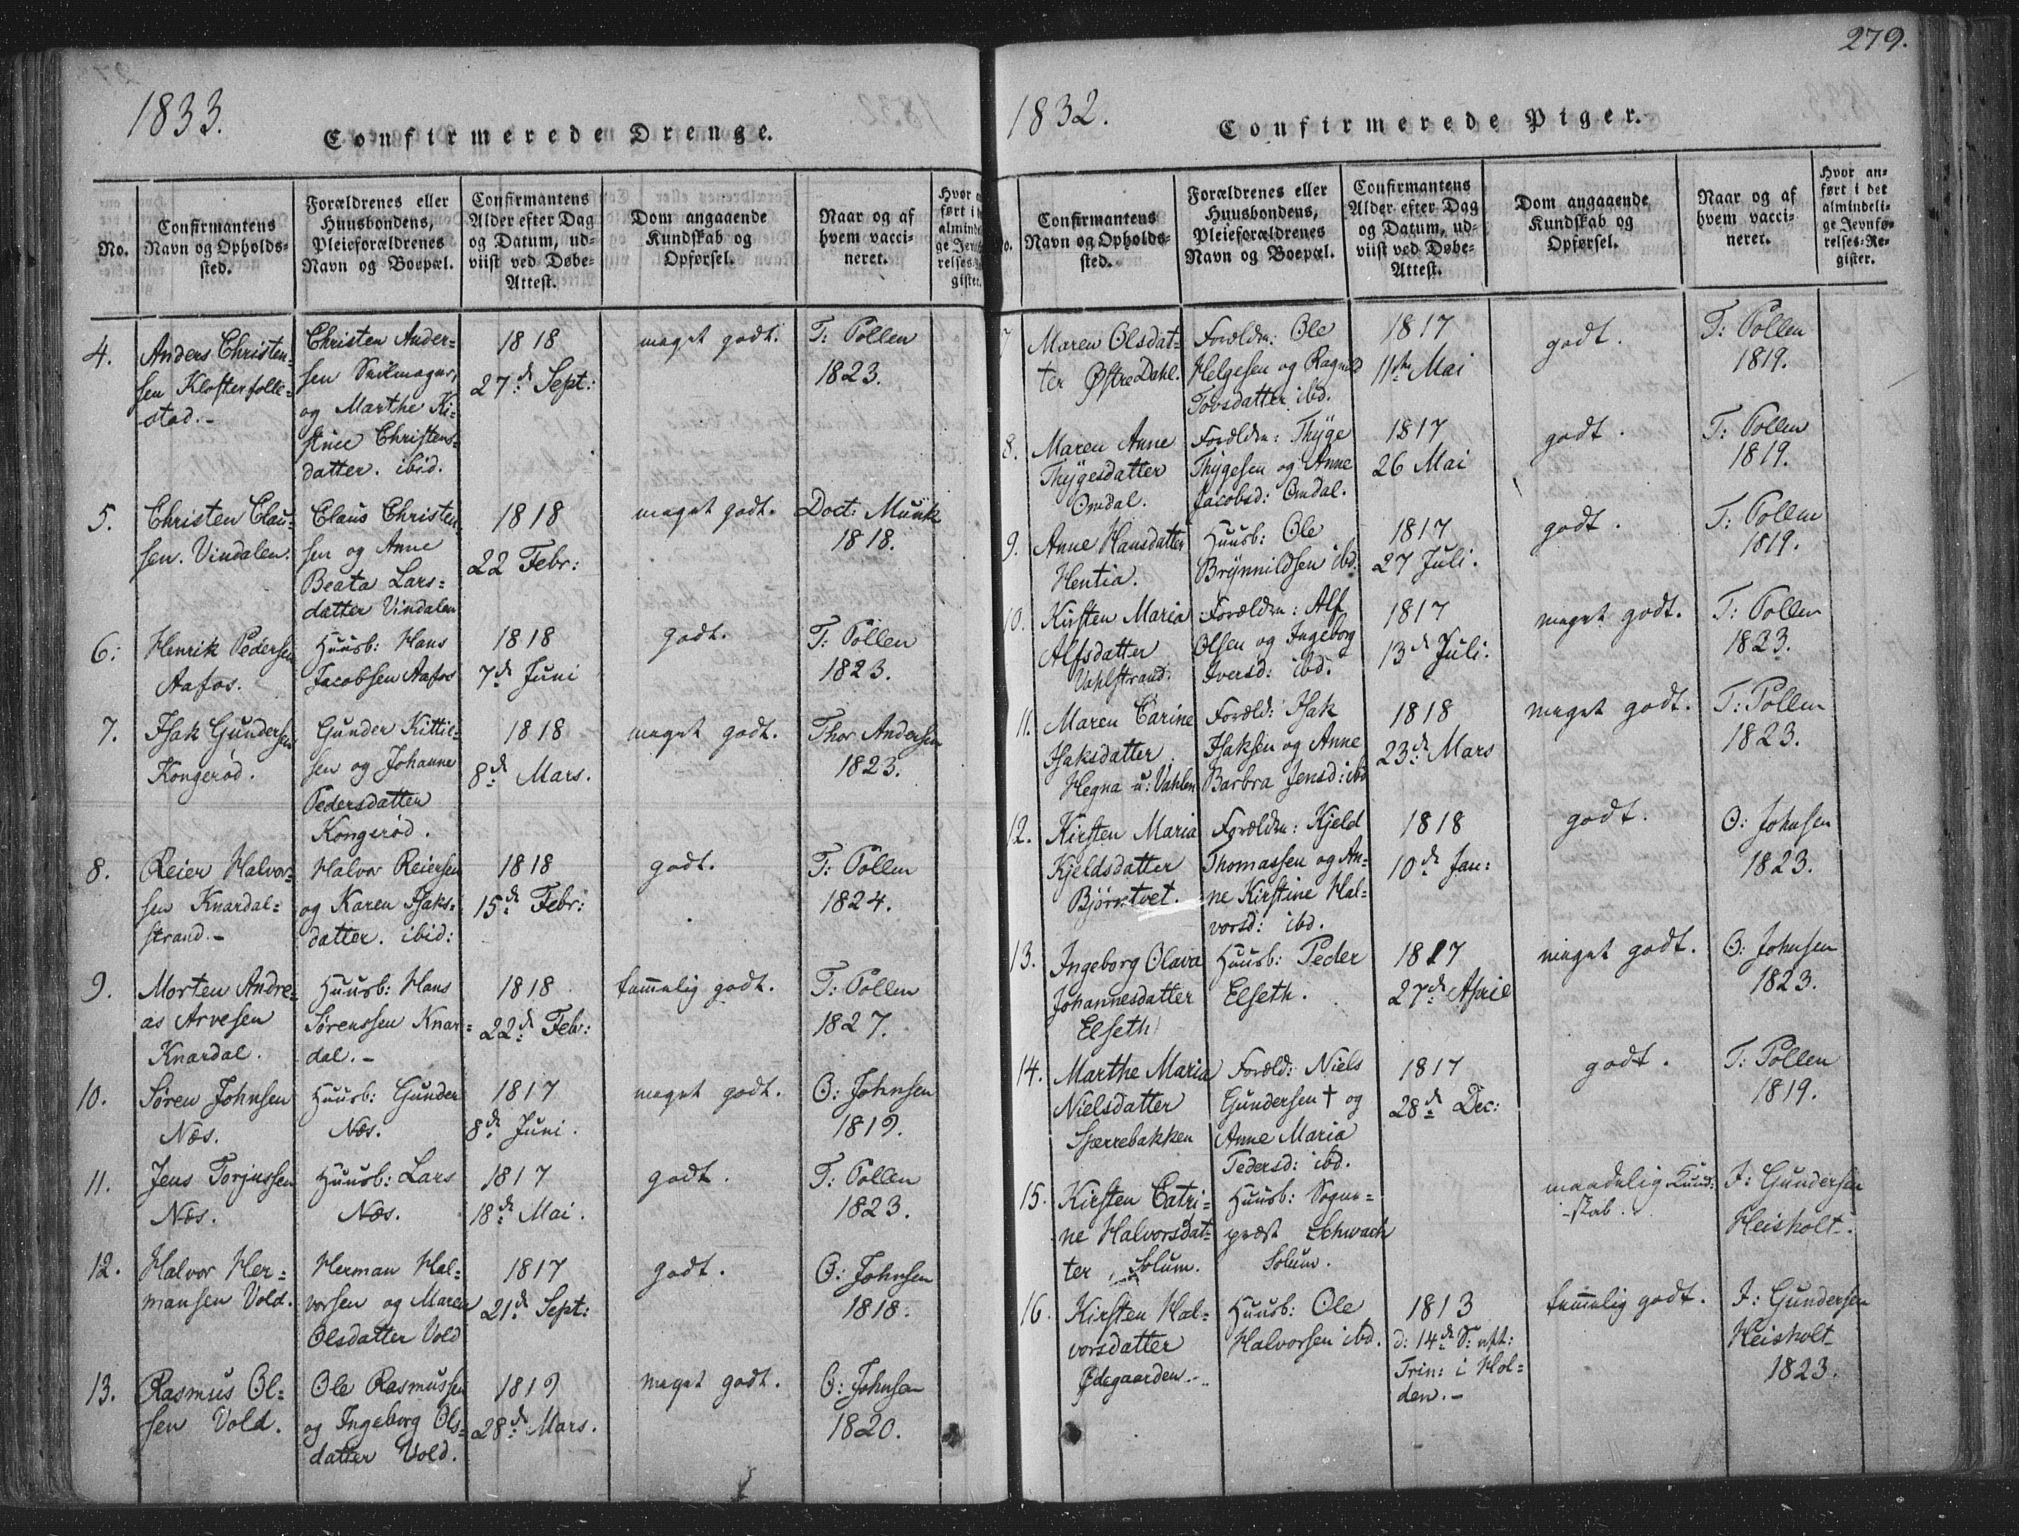 1833.
Confirmerede Drenge.
No.
Confirmantens
Navn og Opholds-
sted.
Forældrenes eller
Huusbondens,
Pleieforældrenes
Navn og Boepæl.
Confirmantens
Alder efter Dag
og Datum, ud-
viist ved Døbe-
Attest.
Dom angaaende
Kundskab og
Opførsel.
Naar og af
hvem vacci-
neret.
4.
Anders Christen-
sen Klosterfolle-
stad.-
Christen Ander-
sen
og Marthe Ki-
stine Christens-
datter. ibid.
1818
27de Sept:
meget godt.
T: Pollen
1823.
5.
Christen Clau-
sen. Vindalen.
Claus Christen-
sen og Anne
Beata Lars-
datter Vindalen
1818
22 Febr:
meget godt.
Doct: Munk
1818.
6:
Henrik Pedersen
Aafos.
Huusb: Hans
Jacobsen Aafos
1818
7de Juni
godt.
T: Pollen
1823.
7.
Isak Gundersen
Kongerød.
Gunder Kittil-
sen og Johanne
Pedersdatter
Kongerød.
1818
8de Mars.
meget godt.
Thor Andersen
1823.
8.
Reier Halvor-
sen Knardal-
strand.-
Halvor Reiersen
og Karen Isaks-
datter. ibid:
1818
15de Febr:
godt.
T: Pollen
1824.
9.
Morten Andre-
as Arvesen
Knardal.
Huusb: Hans
Sørenssen Knar-
dal.-
1818
22de Feb:
temmelig godt.
T: Pollen
1827.
10.
Søren Johnsen
Næs.
Huusb: Gunder
Næs.
1817
8de Juni.
meget godt.
O: Johnsen
1819.
11.
Jens Torjussen
Næs.
Huusb: Lars
Næs.
1817
18de Mai.
godt.
T: Pollen
1823.
12.
Halvor Her-
mansen Vold.
Herman Hal-
vorsen og Maren
Olsdatter Vold
1817
21de Sept:
godt.
O: Johnsen
1818.
13.
Rasmus Ol-
sen Vold.
Ole Rasmussen
og Ingeborg Ols-
datter Vold.
1819
28de Mars.
meget godt.
O: Johnsen
1820.
279.
1832.
Confirmerede Piger.
Confirmantens
Navn og Opholds-
sted.
Forældrenes eller
Huusbondens,
Pleieforældrenes
Navn og Boepæl.
Confirmantens
Alder efter Dag
og Datum, ud-
viist ved Døbe-
Attest.
Dom angaaende
Kundskab og
Opførsel.
Naar og af
hvem vacci-
neret.
Hvor an-
ført i det
almindeli-
ge Jevnfø-
relses-Re-
gister.
7
Maren Olsdat-
ter Østre Dahl.
Forældr: Ole
Helgesen og Ragnild
Tovsdatter ibd.
1817
11te Mai
godt.
T: Pollen
1819.
8.
Maren Anne
Thygesdatter
Omdal.
Forældr: Thyge
Thygesen og Anne
Jacobsd: Omdal.
1817
26 Mai
godt.
T: Pollen
1819.
9.
Anne Hansdatter
Hentia.
Huusb: Ole
Brynnildsen ibd.
1817
27 Juli.
godt.
T: Pollen
1819.
10.
Kirsten Maria
Alfsdatter
Vahlstrand.
Forældr: Alf
Olsen og Ingeborg
Iversd: ibd.
1817
13de Juli.
meget godt.
T: Pollen
1823.
11.
Maren Carine
Isaksdatter
Hegna u: Vahlen
Foræld: Isak
Isaksen og Anne
Barbra Jensd: ibd
1818
23de Mars
meget godt.
T: Pollen
1823.
12.
Kirsten Maria
Kjeldsdatter
Bjørntvet.
Forældr: Kjeld
Thomassen og An-
ne Kirstine Hal-
vorsd: ibd.
1818
10de Jan:
godt.
O: Johnsen
1823.
13.
Ingeborg Olava
Johannesdatter
Elseth
Huusb: Peder
Elseth.
1817
27de April
meget godt.
O: Johnsen
1823.
14.
Marthe Maria
Nielsdatter
Sperrebakken
Foræld: Niels
Gundersen † og
Anne Maria
Pedersd: ibd.
1817
28de Dec:
godt.
T: Pollen
1819.
15.
Kirsten Catri-
ne Halvorsdat-
ter, Solum.
Huusb: Sogne-
præst Schwach
Solum.
maadelig Kund-
skab.
J: Gundersen
Heisholt.
16.
Kirsten Hal-
vorsdatter
Ødegaarden.-
Huusb: Ole
Halvorsen ibd.
1813
d: 14de S: eft:
Trin: i Hol-
den.-
temmelig godt.
J: Gundersen
Heisholt
1823.